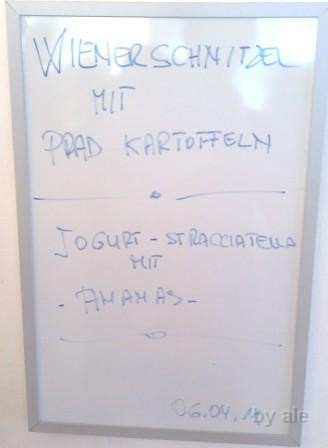 WIENERSCHNITZEL
MIT
PRAD KARTOFFELN
JOGURT - STRACCIATELLA
MIT
- ANANAS -
06.04.
by ale